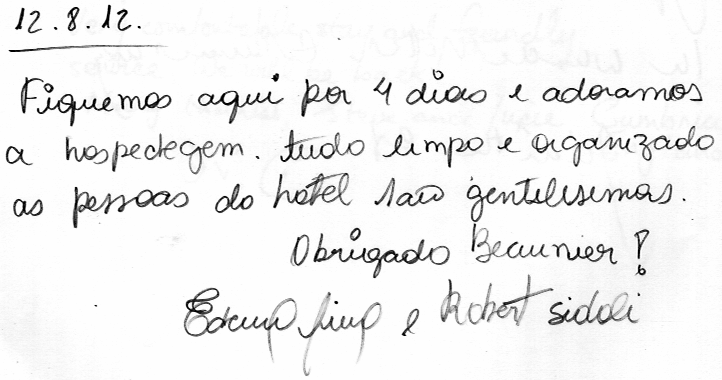 12.8.12.
Fiquemos aqui por 4 dias e adoramos
a hospedegem. tudo limpo e organizado
as pessoas do hotel sao gentilisimas.
Obrigado Beaunier!
e Robert sidoli